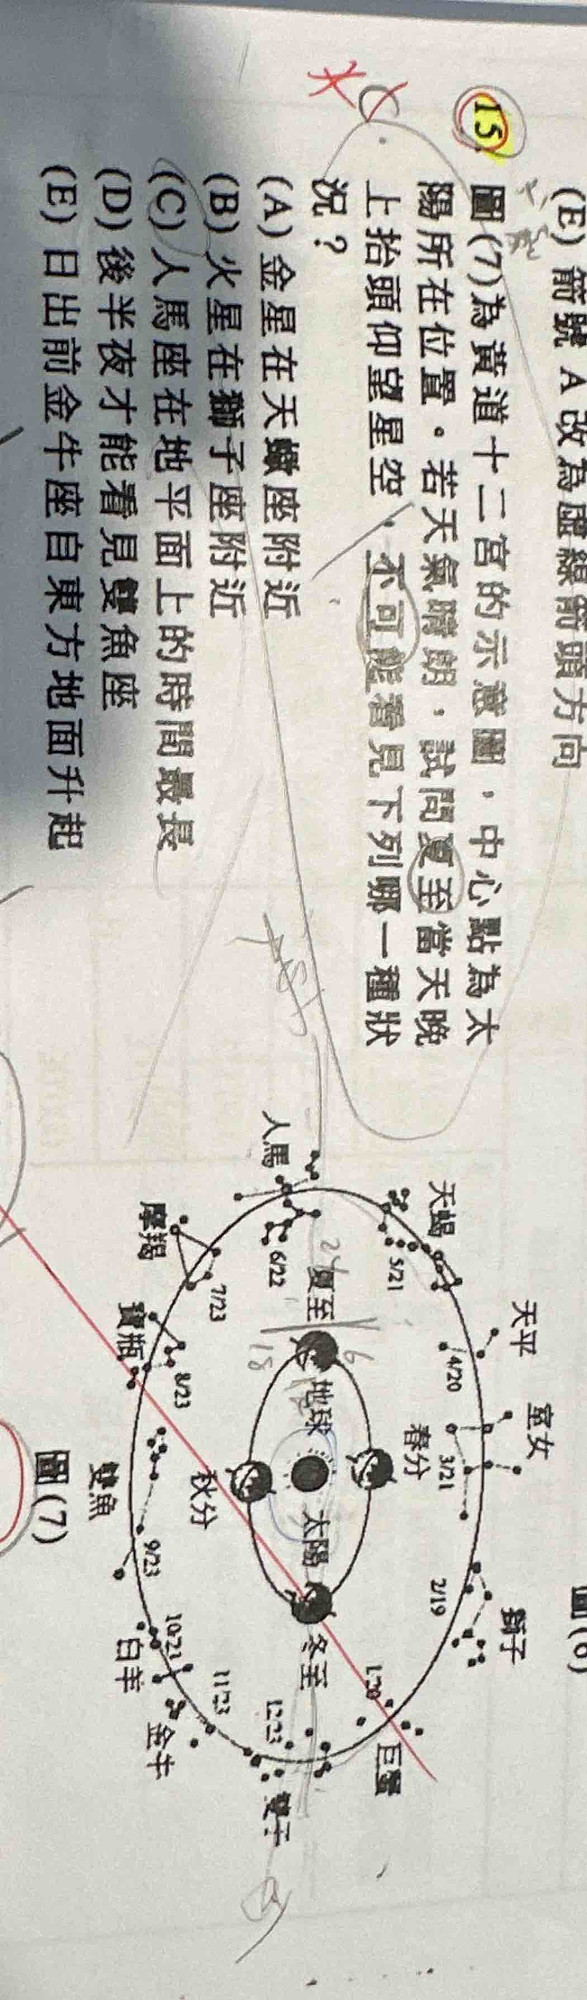 (E) 箭號 A 改為虛線箭頭方向
15.
圖(7)為黃道十二宮的示意圖，中心點為太
陽所在位置。若天氣晴朗，試問夏至當天晚
上抬頭仰望星空，不可能看見下列哪一種狀
況？
(A) 金星在天蠍座附近
(B) 火星在獅子座附近
(C) 人馬座在地平面上的時間最長
(D) 後半夜才能看見雙魚座
(E) 日出前金牛座自東方地面升起
C
天平
室女
獅子
天蝎
4/20
3/21
2/19
5/21
春分
1/20
巨蟹
人馬
6/22
夏至
地球
太陽
冬至
12/23
雙子
6
18
摩羯
7/23
秋分
11/23
金牛
寶瓶
8/23
雙魚
9/23
10/21
白羊
圖(7)